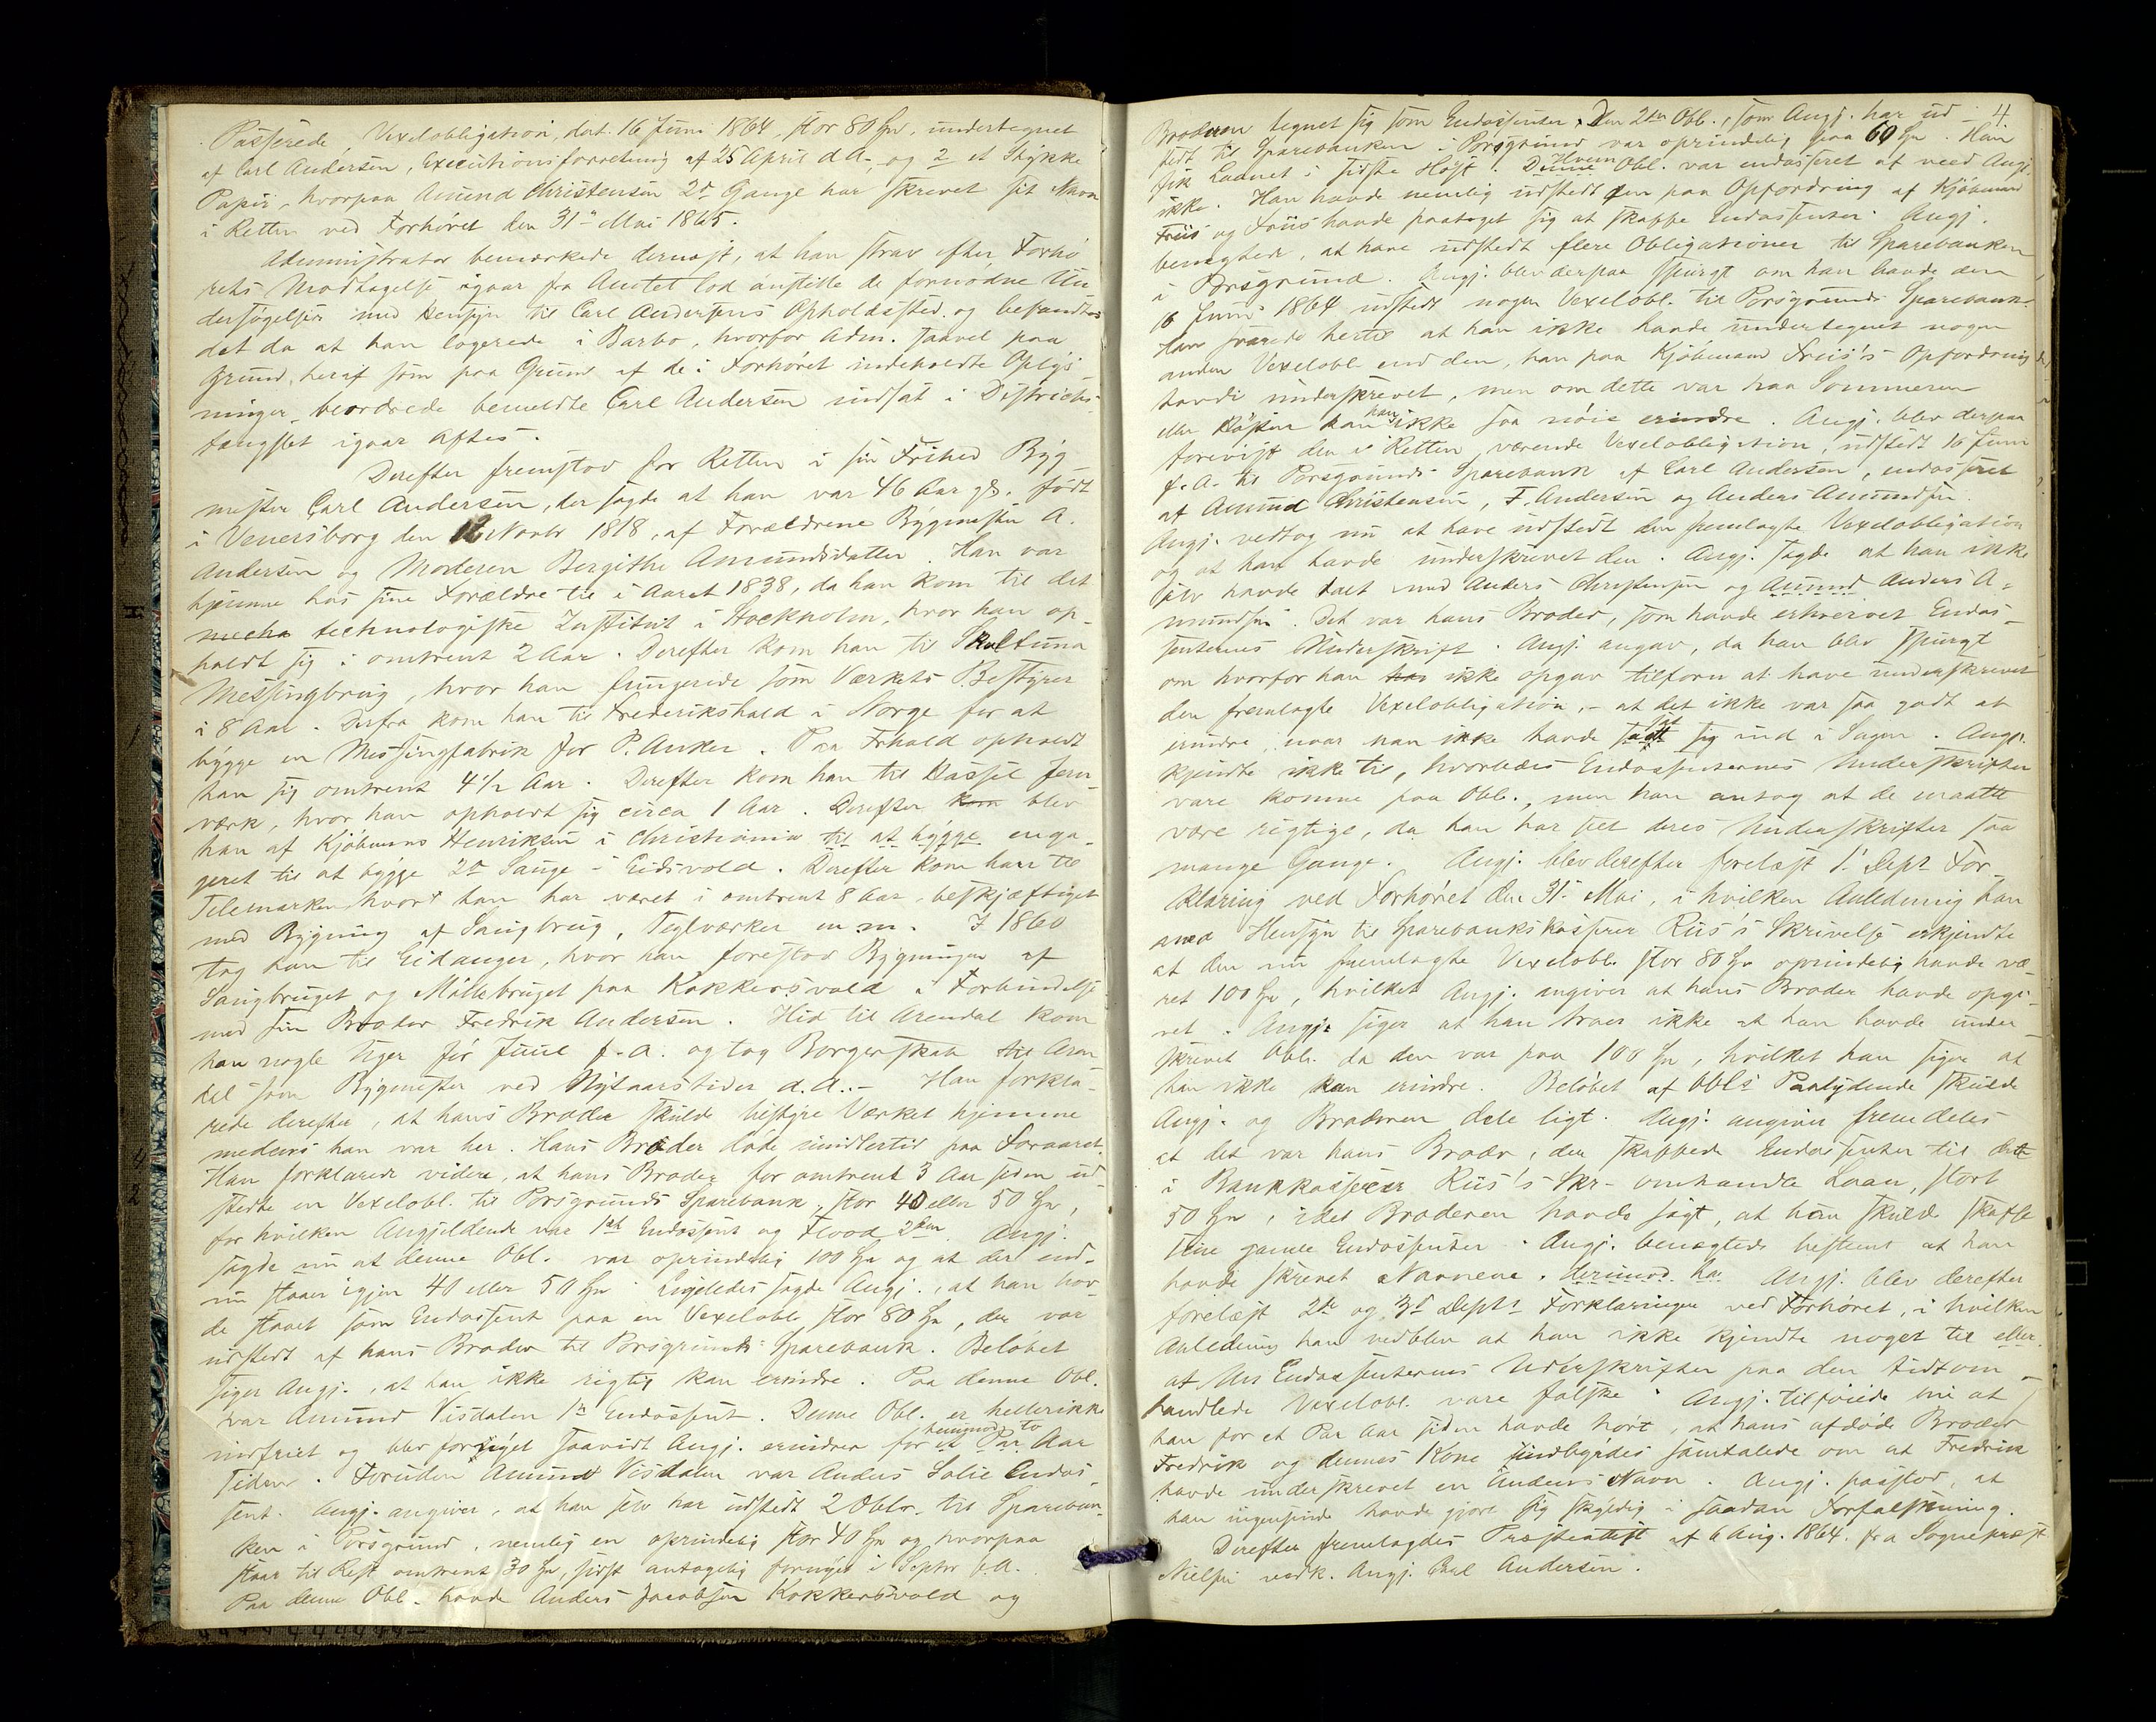 Passerede Vexelobligation, dat. 16 Juni 1864, stor 80 Spd, undertegnet
af Carl Andersen, Executionsforretning af 25 April d.A., og 2 et Stykke
Papir, hvorpaa Amund Christensen 2de Gange har skrevet sit Navn
i Retten ved Forhøret den 31te Mai 1865.
Administrator bemærkede dernæst, at han strax efter Forhø
rets Modtagelse igaar fra Amtet lod anstille de fornødne Un
dersøgelser med Hensyn til Carl Andersens Opholdssted og befandtes
det da at han logerede i Barbo, hvorfor Adm. saavel paa
Grund heraf som paa Grund af de i Forhøret indeholdte Oplys-
ninger beordrede bemeldte Carl Andersen indsat i Distrikts-
fængslet igaar Aftes.
Derefter fremstod for Retten i sin Frihed Byg
mester Carl Andersen, der sagde at han var 46 Aar gl. født
i Venersborg den 12 Novbr 1818, af Forældrene Bygmester A.
Andersen og Moderen Bergithe Amundsdatter. Han var
hjemme hos sine Forældre til i Aaret 1838, da han kom til det
mecha technologiske Institut i Stockholm, hvor han op-
holdt sig i omtrent 2 Aar. Derefter kom han til Skultuna
Messingbrug, hvor han fungerede som Værkets Bestyrer
i 8 Aar. Derfra kom han til Frederikshald i Norge for at
bygge en Messingfabrik for P. Anker. Paa Frhald opholdt
han sig omtrent 4 1/2 Aar. Derefter kom han til Hassel Jern
værk, hvor han opholdt sig circa 1 Aar. Derefter kom blev
han af Kjøbmand Henriksen i Christiania til at bygge enga-
geret til at bygge 2de Sauge i Eidsvold. Derefter kom han til
Telemarken hvor han har været i omtrent 8 Aar, beskjæftiget
med Bygning af Saugbrug, Teglværker m.m. I 1860
tog han til Eidanger, hvor han forestod Bygningen af
Saugbruget og Møllebruget paa Kokkersvold i Forbindelse
med sin Broder Fredrik Andersen. Hid til Arendal kom
han nogle Uger før Juul f.A. og tog Borgerskab til Aren
dal som Bygmester ved Nytaarstider d.A. - Han forkla-
rede derefter, at hans Broder skulde bestyre Værket hjemme
medens han var her. Hans Broder døde imidlertid paa Foraaret.
Han forklarede videre, at hans Broder for omtrent 3 Aar siden ud
stedte en Vexelobl. til Porsgrunds Sparebank, stor 40 eller 50 Spd,
for hvilken Angjeldende var 1ste Endossent og Flood 2den. Angj.
sagde nu at denne Obl. var oprindelig 100 Spd og at der end-
nu staaer igjen 40 eller 50 Spd. Ligeledes sagde Angj., at han hav
de staaet som Endossent paa en Vexelobl. stor 80 Spd, der var
udstedt af hans Broder til Porsgrunds Sparebank. Beløbet
siger Angj., at han ikke rigtig kan erindre. Paa denne Obl.
var Amund Visdalen 1ste Endossent. Denne Obl. er heller ikke
indfriet og blev fornyet saavidt Angj. erindrer for et Par to Aar
siden. Foruden Amund Visdalen var Anders Solie Endos-
sent. Angj. angiver, at han selv har udstedt 2 Oblr. til Spareban-
ken i Porsgrund, nemlig en oprindelig stor 40 Spd og hvorpaa
staar til Rest omtrent 30 Spd, sidst antagelig fornyet i Septbr f.A.
Paa denne Obl. havde Anders Jacobsen Kokkersvold og
4
Broderen tegnet sig som Endossenter. Den 2den Obl., som Angj. har ud-
stedt til Sparebanken i Porsgrund var oprindelig paa 60 Spd. Han
fik Laanet i sidste Høst. Hvem Denne Obl. var endosseret af veed Angj.
ikke. Han havde nemlig udstedt den paa Opfordring af Kjøbmand
Friis og Friis havde paataget sig at skaffe Endossenter. Angj.
benægtede, at have udstedt flere Obligationer til Sparebanken
i Porsgrund. Angj. blev derpaa spurgt om han havde den
16 Juni 1864 udstedt nogen Vexelobl. til Porsgrunds Sparebank.
Han svarede hertil at han ikke havde undertegnet nogen
anden Vexelobl. end den, han paa Kjøbmand Friis's Opfordring
havde underskrevet, men om dette var paa Sommeren
eller Høsten kan han ikke saa nøie erindre. Angj. blev derpaa
forevist den i Retten værende Vexelobligation, udstedt 16 Juni
f.A. til Porsgrunds Sparebank af Carl Andersen, endosseret
af Amund Christensen, F. Andersen og Anders Amundsen.
Angj. vedtog nu at have udstedt den fremlagte Vexelobligation
og at han havde underskrevet den. Angj. sagde at han ikke
selv havde talt med Anders Christensen og Amund Anders A-
mundsen. Det var hans Broder, som havde erhvervet Endos-
senternes Underskrift. Angj. angav, da han blev spurgt
om hvorfor han har ikke opgav tilforn at have underskrevet
den fremlagte Vexelobligation, - at det ikke var saa godt at
erindre, naar man ikke havde sat sig ind i Sagen. Angj.
kjendte ikke til, hvorledes Endossenternes Underskrifter
vare komne paa Obl., men han antog at de maatte
være rigtige, da han har seet deres Underskrifter saa
mange Gange. Angj. blev derefter forelæst 1' Depts For-
klaring ved Forhøret den 31. Mai, i hvilken Anledning han
med Hensyn til Sparebankskasserer Riis's Skrivelse erkjendte
at den nu fremlagte Vexelobl. stor 80 Spd oprindelig havde væ-
ret 100 Spd, hvilket Angj. angiver at hans Broder havde opgi-
vet. Angj. siger at han troer ikke at han havde under-
skrevet Obl. da den var paa 100 Spd, hvilket han siger at
han ikke kan erindre. Beløbet af Obls Paalydende skulde
Angj. og Broderen dele ligt. Angj. angiver fremdeles
at det var hans Broder, der skaffede Endossenter til det
i Bankkasserer Riis's Skr. omhandlede Laan, stort
50 Spd, idet Broderen havde sagt, at han skulde skaffe
sine gamle Endossenter. Angj. benægtede bestemt at han
havde skrevet Navnene. Angj. blev derefter
forelæst 2de og 3de Depts Forklaringer ved Forhøret, i hvilken
Anledning han vedblev at han ikke kjendte noget til eller
at Endossenternes Underskrifter paa den tidtom-
handlede Vexelobl. vare falske. Angj. tilføiede nu at
han for et Par Aar siden havde hørt, at hans afdøde Broder
Fredrik og dennes Kone indbyrdes samtalede om at Fredrik
havde underskrevet en Andens Navn. Angj. paastod, at
han ingensinde havde gjort sig skyldig i saadan Forfalskning.
Derefter fremlagdes Præsteattest af 6 Aug. 1864 fra Sognepræst
Nielsen vedk. Angj. Carl Andersen.